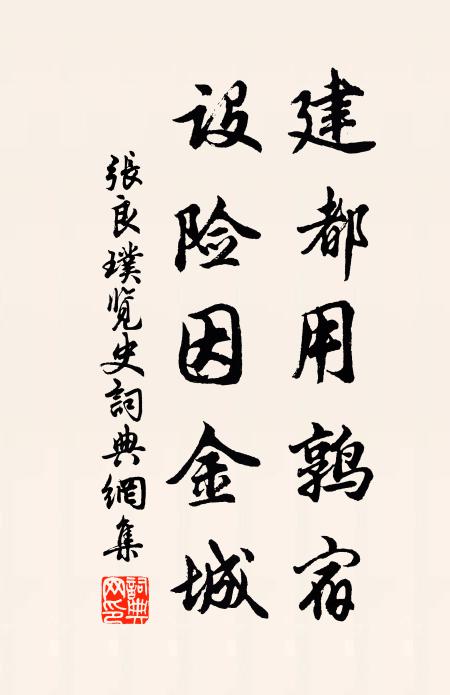 建都用鹑宿
设险因金城
張良璞览史詞典網集
詞典网印